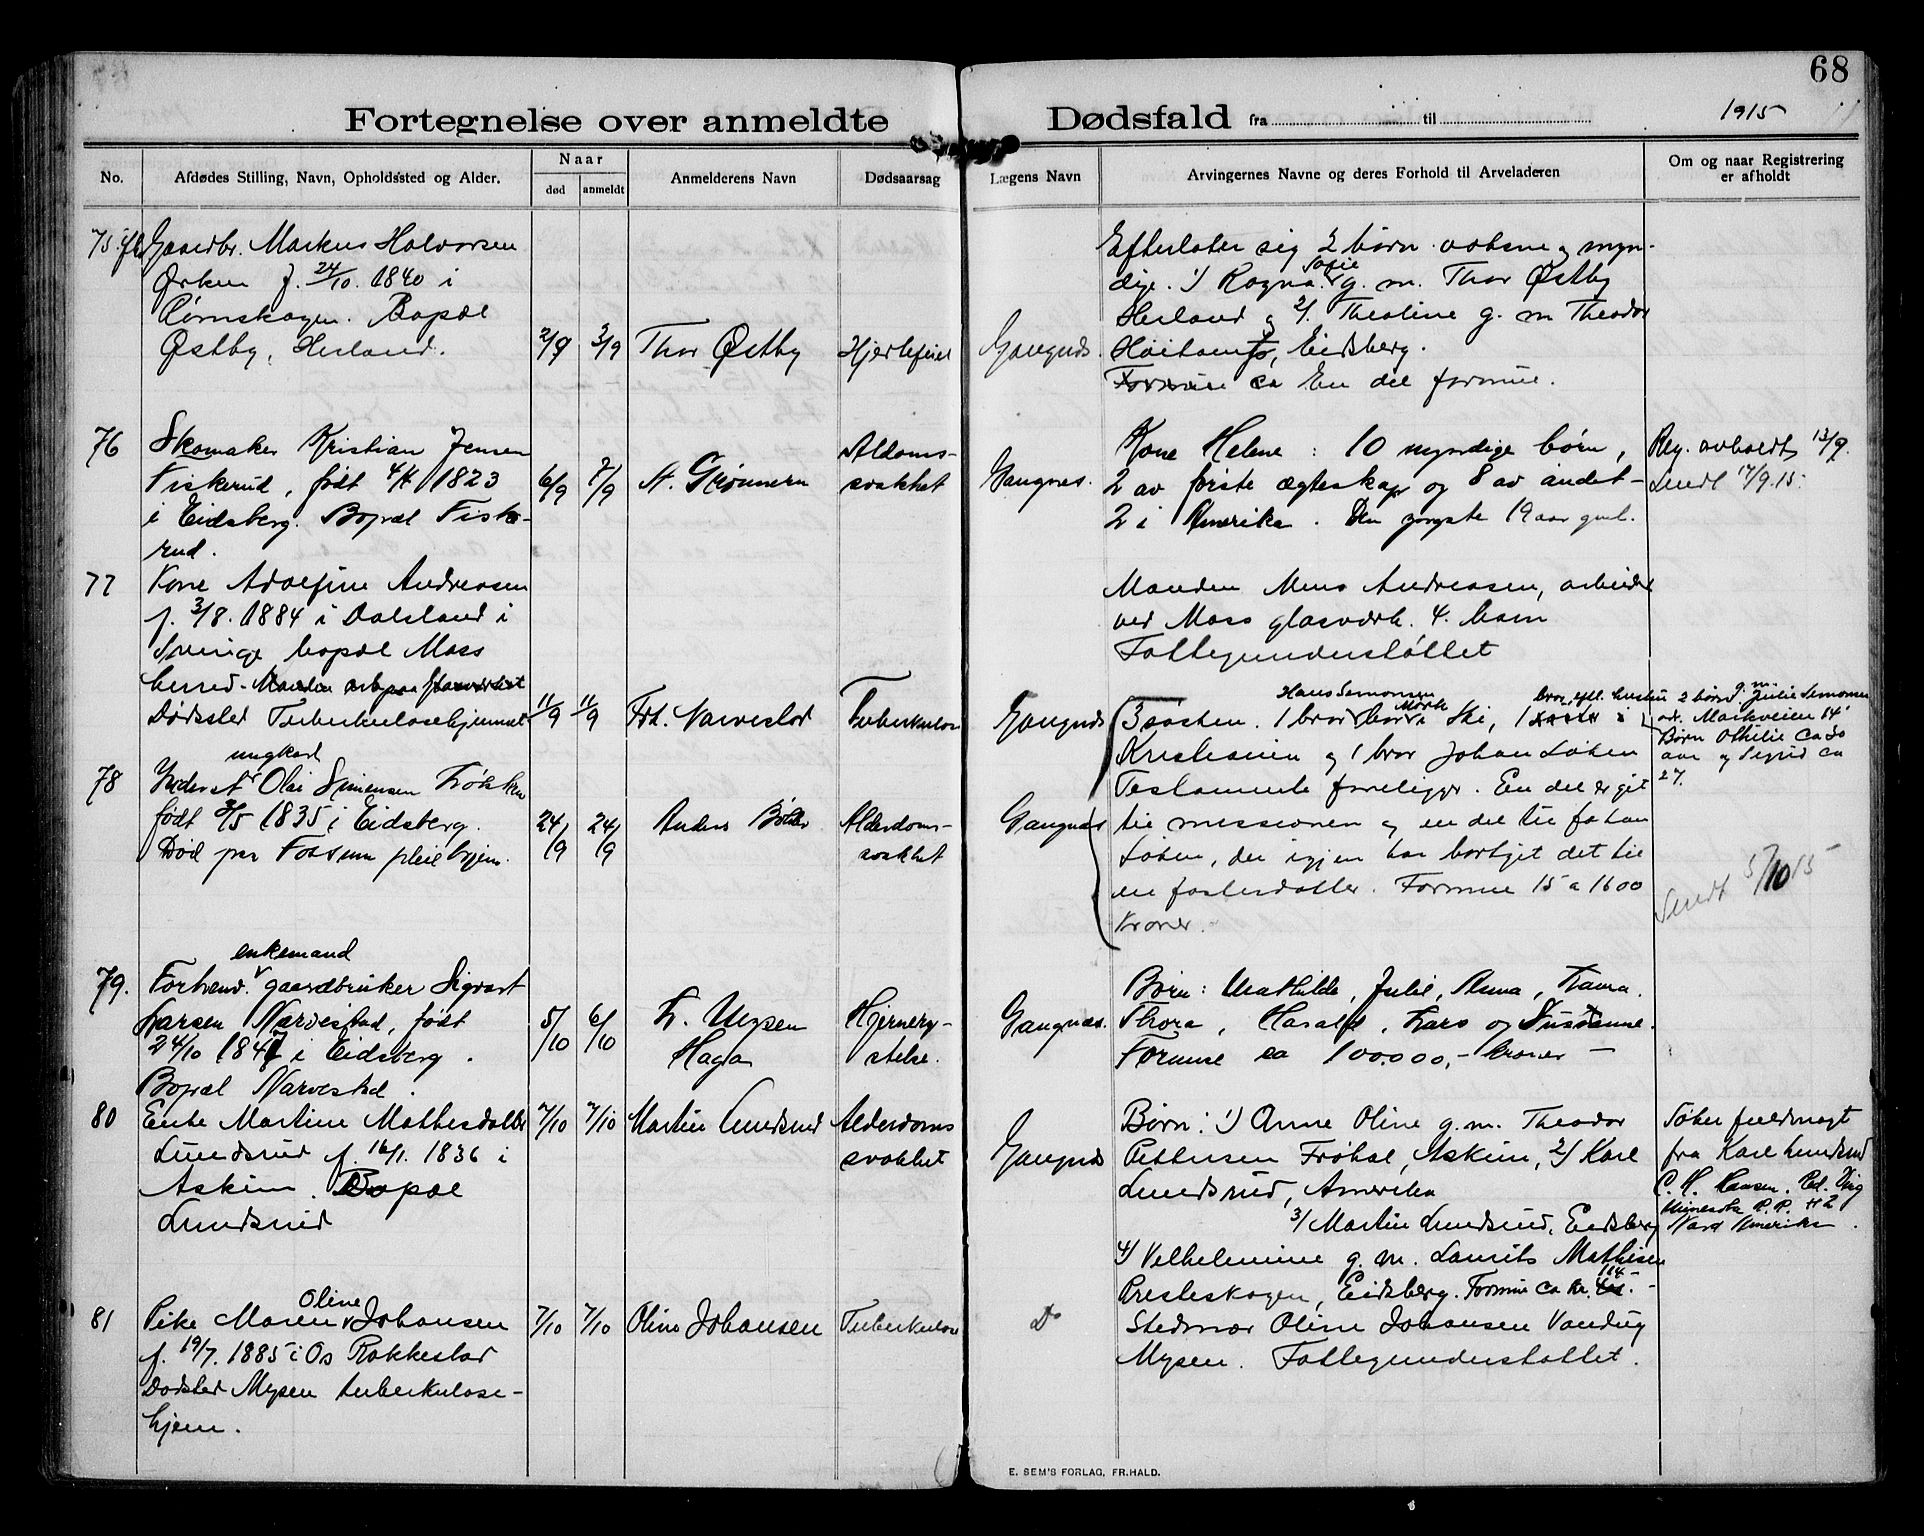 68
Fortegnelse over anmeldte Dødsfald fra til 1915
No.
Afdødes Stilling, Navn, Opholdssted og Alder.
Naar
død
anmeldt
Anmelderens Navn
Dødsaarsag
Lægens Navn
Arvingernes Navne og deres Forhold til Arveladeren
Om og naar Registrering
er afholdt
75
Gaardbr. Markus Halvorsen
Ørken f. 24/10. 1840 i
Rømskogen. Bopæl
Østby, Herland.
2/9
3/9
Thor Østby
Hjertefeil
Gangnæs.
Efterlater sig 2 børn voksne og myn-
dige. 1) Ragna Sofie g. m. Thor Østby
Herland og 2/. Theoline g. m Theodor
Høitomt, Eidsberg.
Formue ca En del formue.
76
Skomaker Kristian Jensen
Fiskerud, født 4/4 1823
i Eidsberg. Bopæl Fiske-
rud.
6/9
7/9
A. Grønnern
Aldoms-
svakhet
Gangnæs.
Kone Helene : 10 myndige børn,
2 av første ægteskap og 8 av andet -
2 i Amerika. Den yngste 19 aar gml.
Reg. avholdt 13/9.
Sendt 17/9.15.
77
Kone Adolfine Andreasen
f. 3/8. 1884 i Dalsland i
Sverige bopæl Moss
herred. Manden arb paa Glasværket
Dødssted Tuberkulosehjemmet
11/9
11/9
Frk. Narvestad
Tuberkulose
Gangnæs
Manden Mens Andreasen, arbeider
ved Moss glasværk. 4. barn
Fattigunderstøttet
78
ungkarl
Inderst Olai Simensen Løkken
født 3/5 1835 i Eidsberg.
Død paa Fossum pleiehjem.
24/9
24/9
Anders
Alderdoms-
svakhet
Gangnæs
Hans Simonsen
3 søstre. 1 bror Ski, 1 i
Kristiania og 1 bror Johan Løken
Testamente foreligger. En del er git
til missionen og en del til Johan
Løken, der igjen har bortgit det til
en fosterdatter. Formue 15 a 1600
kroner.
2 børn g. m. Julie Simonsen
ad. Markveien 14
Børn Othilie ca 30
aar og Sigrid ca
27.
Sendt 5/10 15
79.
enkemand
Forhenv. gaardbruker Sigvart
Larsen Narvestad, født
24/10 1847 i Eidsberg.
Bopæl Narvestad.
5/10
6/10
L. Mysen
Haga
Hjernery-
stelse.
Gangnæs.
Børn: Mathilde, Julie, Anna, Laura.
Thora, Harald, Lars og Susanne.
Formue ca 100.000,- kroner -
80
Enke Martine Mathesdatter
Lundsrud f. 16/1. 1836 i
Askim. Bopæl
Lundsrud
7/10
7/10
Martin Lundsrud
Alderdoms
svakhet
Gangnæs
Børn: 1) Anne Oline g. m. Theodor
Pettersen Frøhol, Askim, 2) Karl
Lundsrud, Amerika
3/ Martin Lundsrud, Eidsberg
4/ Vilhelmine g. m. Laurits Mathisen
Presteskogen, Eidsberg. Formue ca kr. 114 -
Søker fuldmagt
fra Karl Lundsrud
C. H. Hansen. Red Wing
Minesota R. R. # 2
Nord Amerika.
81
Pike Maren Oline Johansen
f. 19/7. 1885 i Os Rakkestad
Dødsted Mysen tuberkulose-
hjem.
7/10
7/10
Oline Johansen
Tuberkulose
Do
Stedmor Oline Johansen Vandug
Mysen. Fattigunderstøttet.
E. SEM'S FORLAG, FR.HALD.